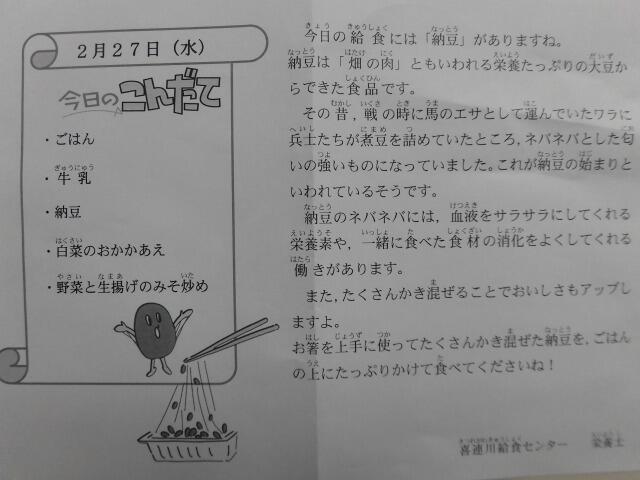 2月27日（水）
今日のこんだて
・ごはん
・牛乳
・納豆
・白菜のおかかあえ
・野菜と生揚げのみそ炒め
今日の給食には「納豆」がありますね。
納豆は「畑の肉」ともいわれる栄養たっぷりの大豆か
らできた食品です。
その昔，戦の時に馬のエサとして運んでいたワラに
兵士たちが煮豆を詰めていたところ，ネバネバとした匂
いの強いものになっていました。これが納豆の始まりと
いわれているそうです。
納豆のネバネバには，血液をサラサラにしてくれる
栄養素や，一緒に食べた食材の消化をよくしてくれる
働きがあります。
また，たくさんかき混ぜることでおいしさもアップし
ますよ。
お箸を上手に使ってたくさんかき混ぜた納豆を，ごはん
の上にたっぷりかけて食べてくださいね！
喜連川給食センター　栄養士